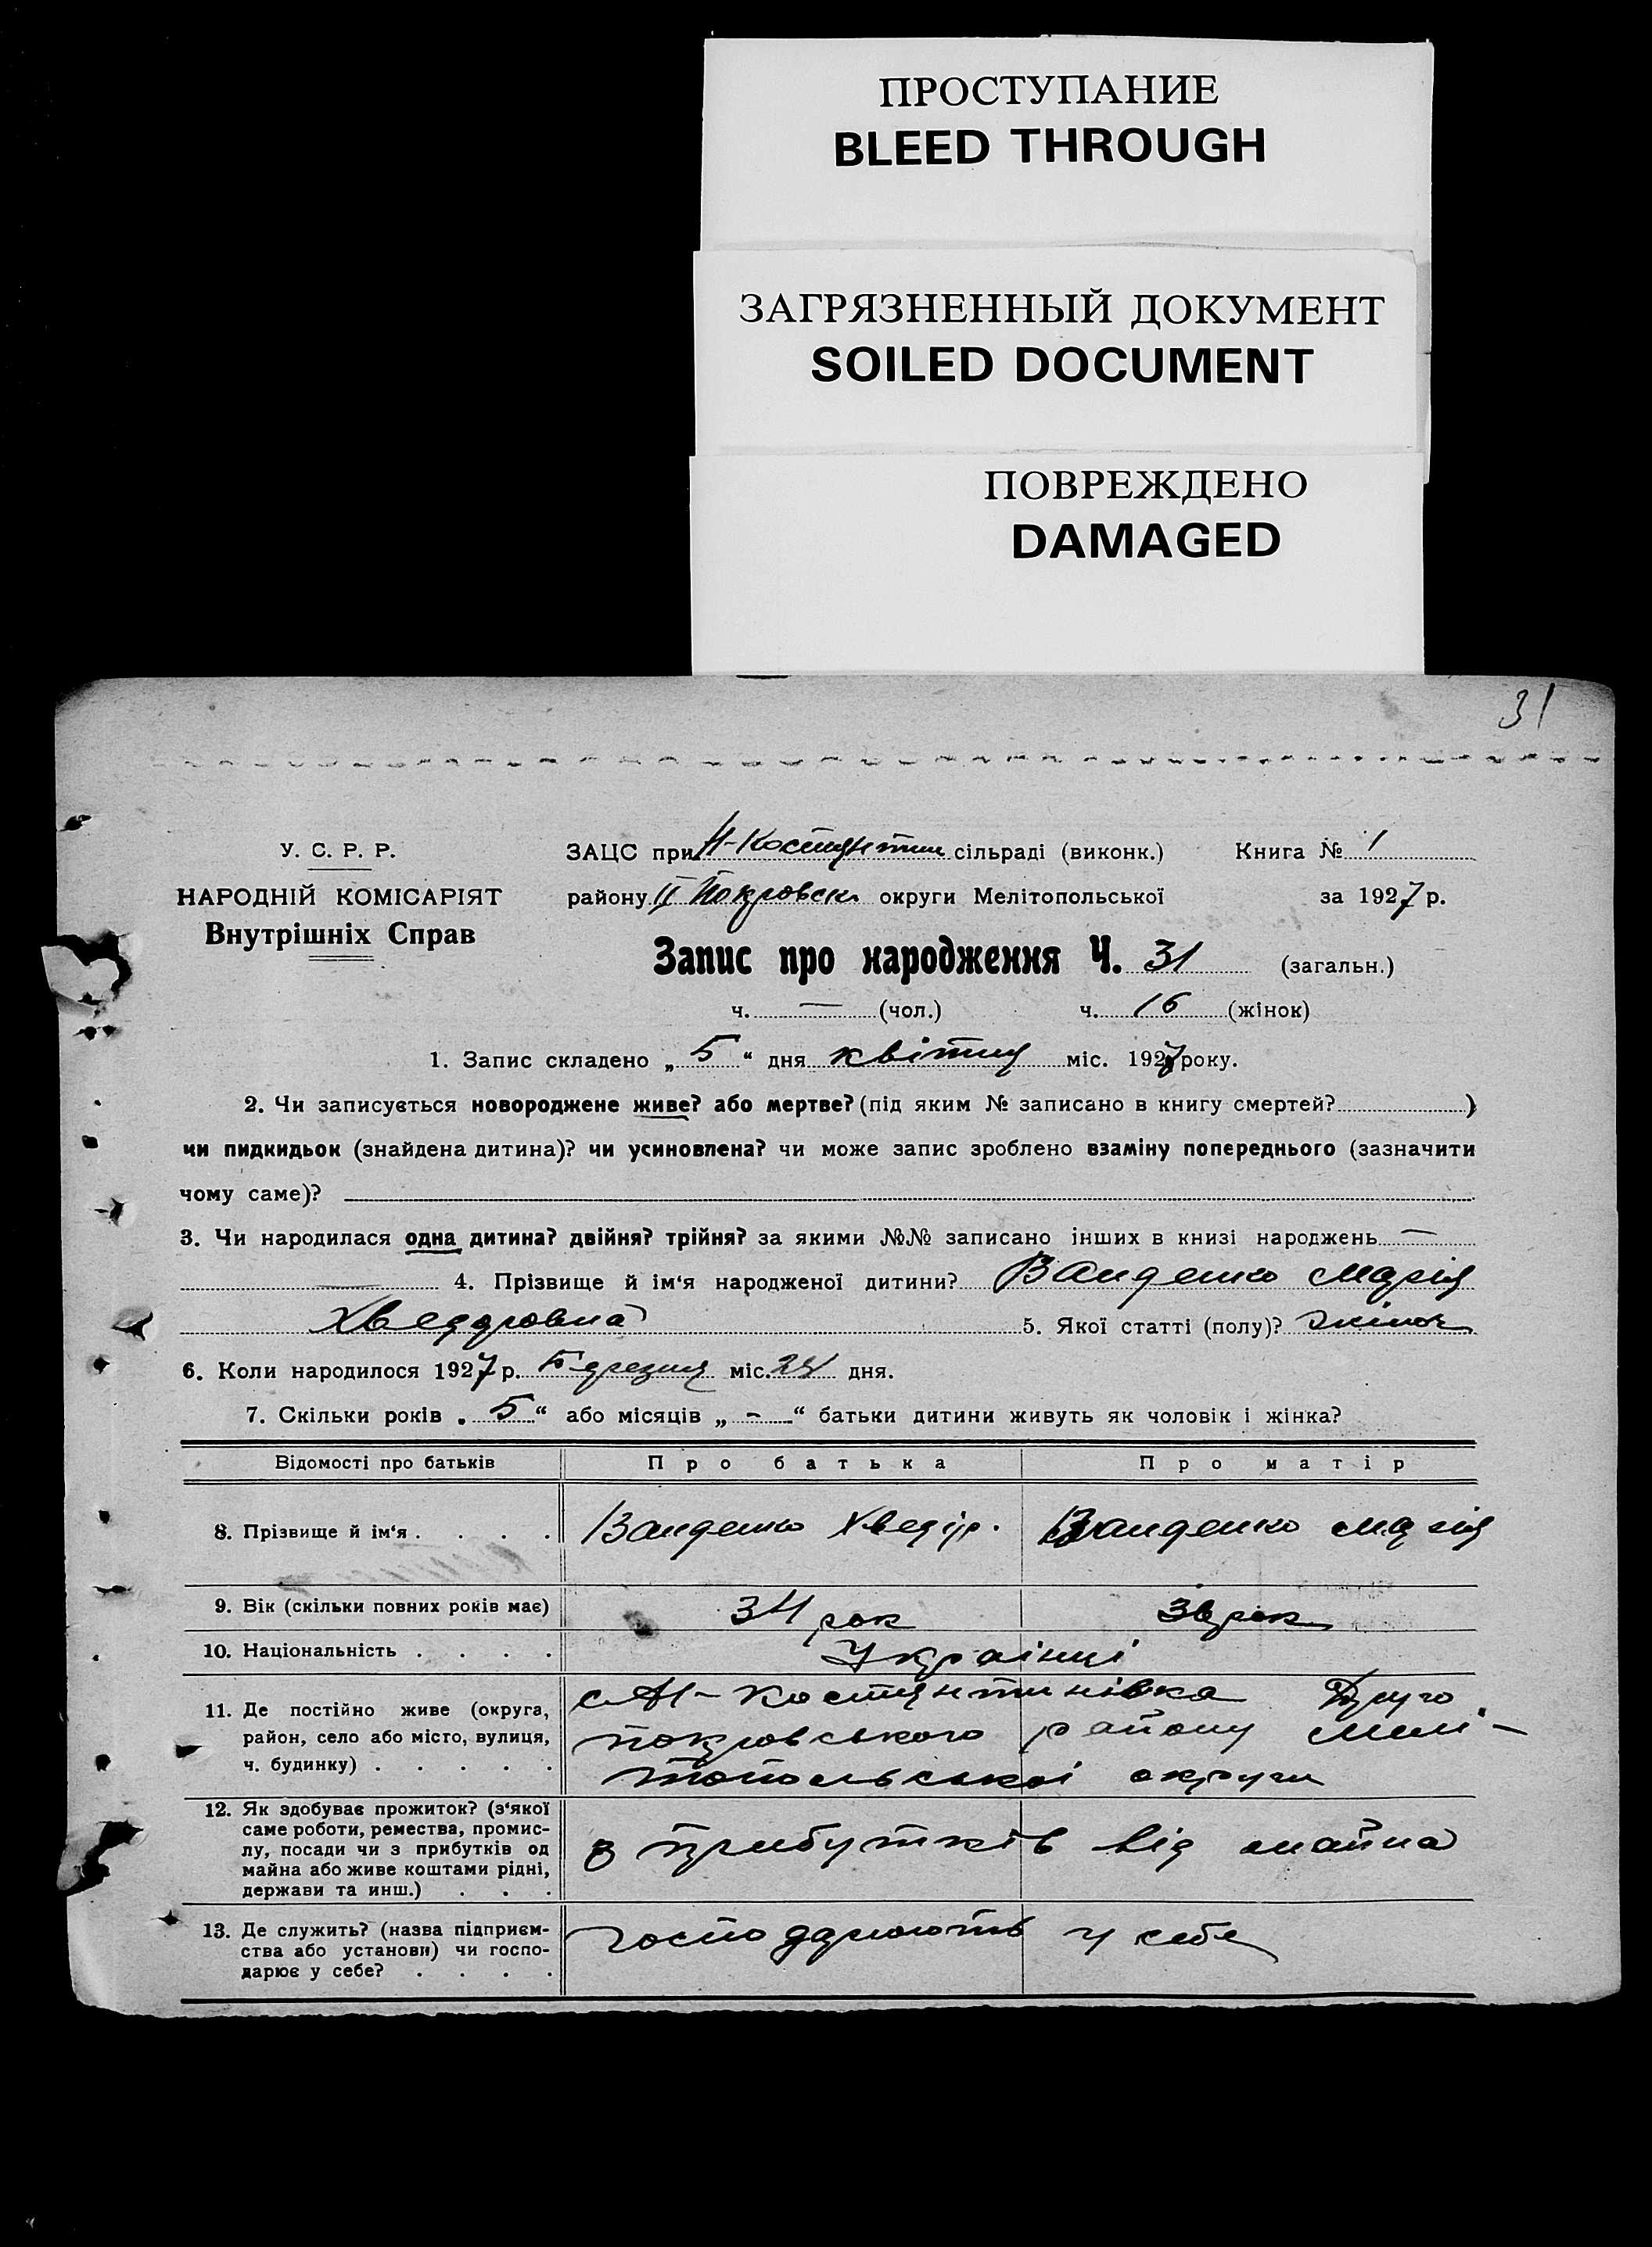 ПРОСТУПАНИЕ
BLEED THROUGH
ЗАГРЯЗНЕННЫЙ ДОКУМЕНТ
SOILED DOCUMENT
ПОВРЕЖДЕНО
DAMAGED
31
У. С. Р. Р.
НАРОДНІЙ КОМІСАРІЯТ
Внутрішніх Справ
ЗАЦС при Н-Костянтин сільраді (виконк.) Книга № 1
району ІІ Покровськ округи Мелітопольської за 1927 р.
Запис про народження Ч. 31 (загальн.)
ч. — (чол.) ч. 16 (жінок)
1. Запис складено „ 5 “ дня квітня міс. 1927 року.
2. Чи записується новороджене живе? або мертве? (під яким № записано в книгу смертей? )
чи пидкидьок (знайдена дитина)? чи усиновлена? чи може запис зроблено взаміну попереднього (зазначити
чому саме)?
3. Чи народилася одна дитина? двійня? трійня? за якими №№ записано інших в книзі народжень —
— 4. Прізвище й ім‘я народженої дитини? Ванденко Марія
Хведоровна 5. Якої статті (полу)? жіноч
6. Коли народилося 1927 р. Березня міс. 24 дня.
7. Скільки років „ 5 “ або місяців „ - “ батьки дитини живуть як чоловік і жінка?
Відомості про батьків Про батька Про матір
8. Прізвище й ім‘я . . . . Ванденко Хведір. Ванденко Марія
9. Вік (скільки повних років має) 34 рок рок
10. Національність . . . . Українці
11. Де постійно живе (округа,
район, село або місто, вулиця,
ч. будинку) . . . . .
с Н-Костянтинівка Друго
покровського району Мелі-
топольської округи
12. Як здобуває прожиток? (з‘якої
саме роботи, ремества, промис-
лу, посади чи з прибутків од
майна або живе коштами рідні,
держави та инш.) . . .
з прибутків від майна
13. Де служить? (назва підприєм-
ства або установи) чи госпо-
дарює у себе? . . . .
господарюють у себе